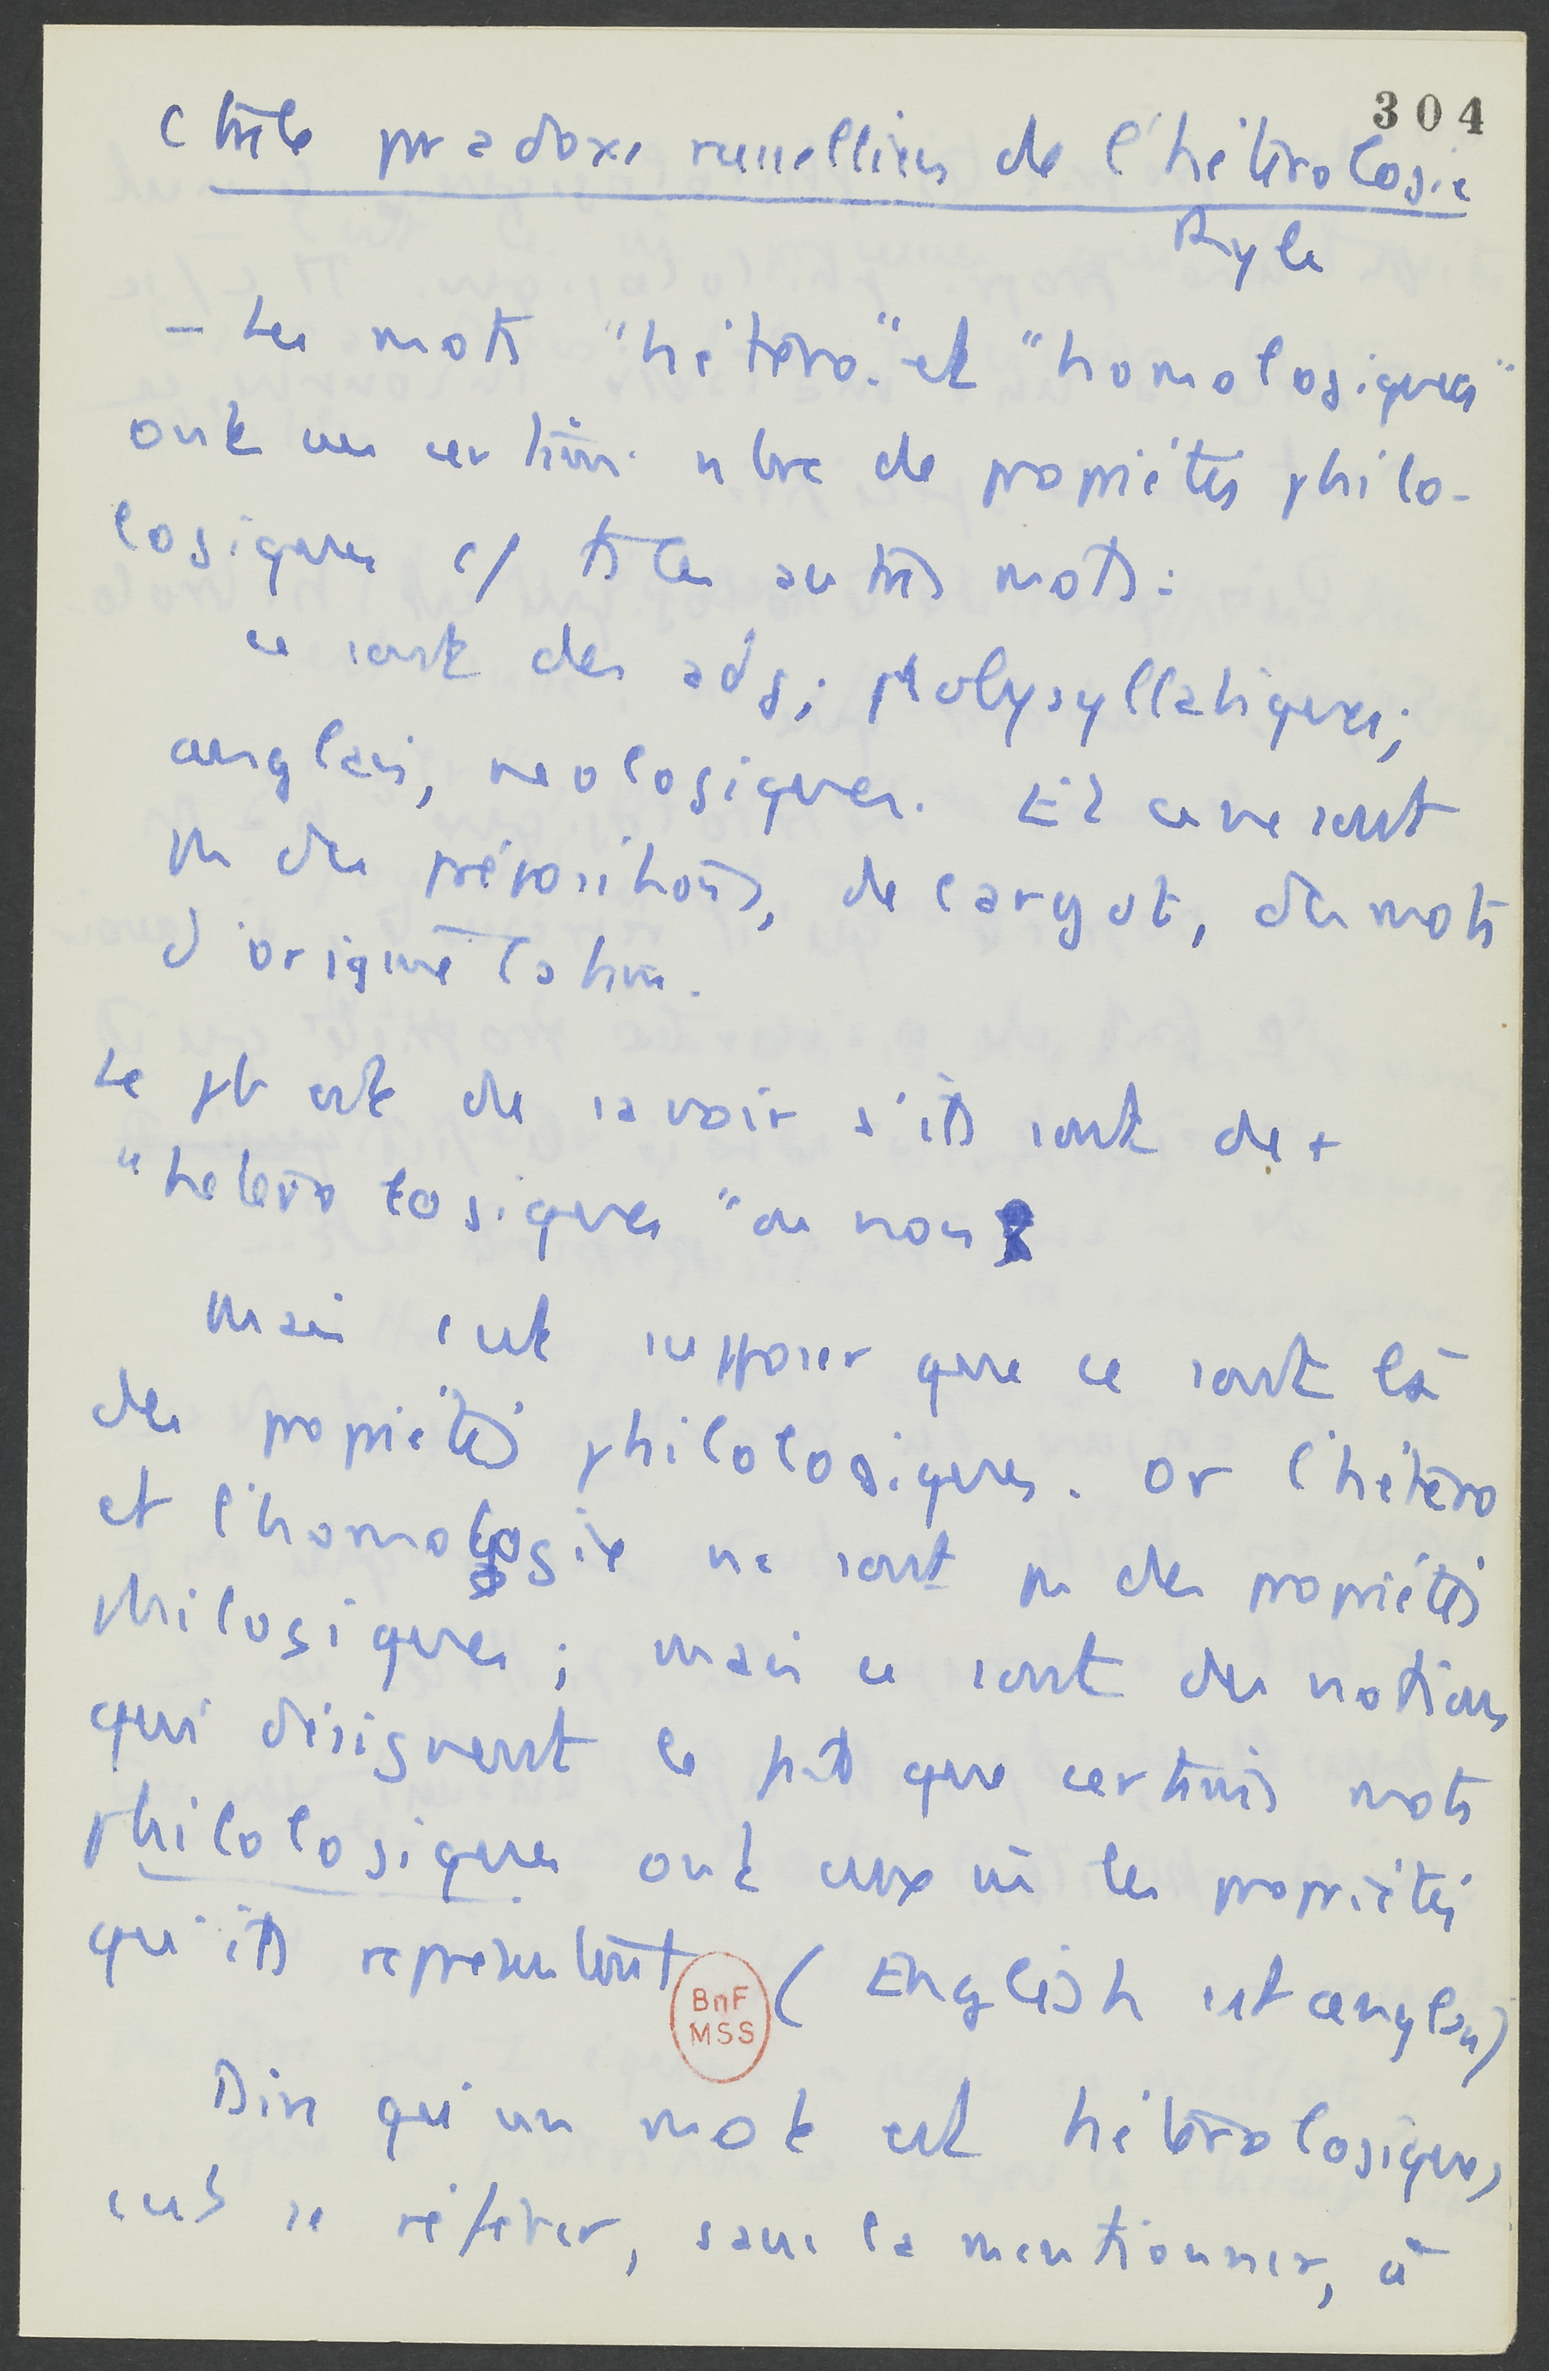 304
C tre le paradoxe russellien de l'hétérologie
Ryle
– Les mots "hétéro." et "homologiques"
ont un certain nbre de propriétés philo-
logiques c/ ts les autres mots :
ce sont des adj; polysyllabiques;
anglais, neologiques. Et ce ne sont
pas des prépositions, de l'argot, des mots
d'origine latine.
Le pb est de savoir s'ils sont de +
"heterologiques" ou non
Mais c'est supposer que ce sont là
des propriétés philologiques. Or l'hétéro
et l'homologie ne sont pas des propriétés
philogiques ; mais ce sont des notions
qui désignent le fait que certains mots
philologiques ont eux-m̂ les propriétés
qu'ils représentent (English est anglais)
BnF
MSS
Dire qu'un mot est hétérologique,
c'est se référer, sans la mentionner, à